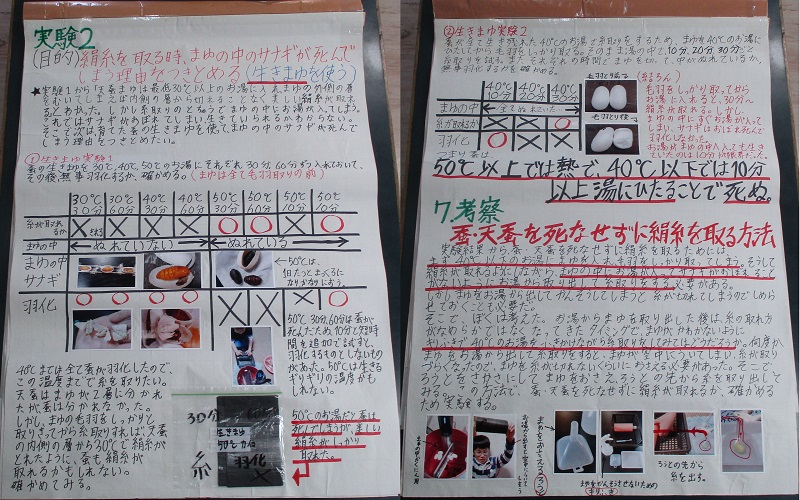 実験2
(目的)絹糸を取る時、まゆの中のサナギが死んで
しまう理由をつきとめる(生きまゆを使う)
①生きまゆ実験1
蚕の生きまゆを30℃、40℃、50℃のお湯にそれぞれ30分、60分ずつ入れておいて、
その後、無事羽化するか、確かめる。(まゆは全て毛羽取りの前)
30℃ 30分
30℃ 60分
40℃ 30分
40℃ 60分
50℃ 30分
50℃ 60分
50℃ 10分
50℃ 10分
糸が取れるか
まゆの中
ぬれていない
ぬれている
まゆの中
サナギ
羽化
50℃は、
50℃30分、60分は蚕が
死んだため、10分と短時
間を追加で試すと、
羽化するものとしないもの
があった。50℃は生きる
ギリギリの温度かも
しれない。
40℃までは全て蚕が羽化したので、
この温度までで糸を取りたい。
天蚕はまゆが2層に分かれ
たが蚕は分かれなかった。
しかし、まゆの毛羽をしっかりと
取りきってから糸取りすれば、天蚕
の内側の層から30℃で絹糸が
とれたように、蚕も絹糸が
取れるかもしれない。
確かめてみる。
30分
60分
糸
生きまゆ
羽化
50℃のお湯だと蚕は
死んでしまうが、美しい
絹糸がしっかり
取れた。
②生きまゆ実験2
蚕が全て生き残れた40℃のお湯で糸取りをするため、まゆを40℃のお湯に
ひたしてから毛羽をしっかり取る。そのままお湯の中で、10分、20分、30分ごと
無事羽化するかを確かめる。
40℃ 10分
40℃ 20分
40℃ 30分
まゆの中
全てぬれていた
糸が取れるか
羽化
毛羽取り前
毛羽取り後
(結ろん)
毛羽をしっかり取ってから
お湯へ入れると、30分〜
絹糸が取れる。しかし、
まゆの中にすぐお湯が入って
しまい、サナギはおぼれ死んで
羽化しなかった。
お湯がまゆの中へ入っても生き
ていたのは10分が限界だった。
つまり蚕は
50℃以上では熱で、40℃以下では10分
以上湯にひたることで死ぬ。
7.考察
蚕・天蚕を死なせずに絹糸を取る方法
実験結果から、蚕・天蚕を死なせずに絹糸を取るためには、
まず40℃以下のお湯にまゆを入れ、毛羽をしっかり取ってしまう。そうして
絹糸が取れるようにしながら、まゆの中にお湯が入ってサナギがおぼれること
がないように、お湯から取り出して糸取りをする必要がある。
しかし、まゆをお湯から出してかんそうしてしまうと糸がとれてしまうのでしめら
せておくことも必要だ。
そこで、ぼくは考えた。お湯からまゆを取り出した後は、糸の取れ方
がなめらかではなくなってきたタイミングで、まゆがかわかないように
きりふきで40℃のお湯をふきかけながら糸取りをしてみてはどうだろうか。何度か
まゆをお湯から出して糸取りをすると、まゆが空中にういてしまい、糸が取り
づらくなったので、まゆを糸がきれないくらいにおさえる必要があった。そこで、
ろうとをさかさにしてまゆをおさえ、ろうとの先から糸を取り出して
みる。この方法で、蚕・天蚕を死なせずに絹糸が取れるか、確かめる
ため実験する。
まゆをおさえるろうと
まゆをかんそうさせないための
きりふき
ろうとの先から
糸を出す。